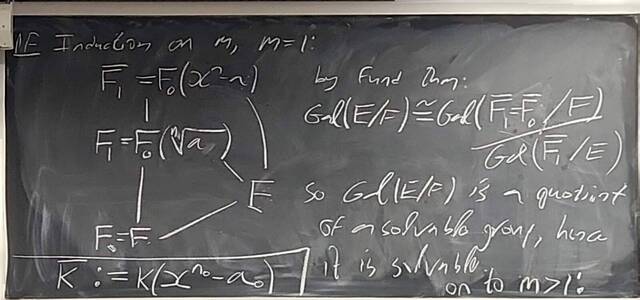 Induction on m, m=1:
F̅₁ = F₀(xⁿ-a)
F₁ = F₀(ⁿ√a)
E
F₀ = F
K̅ := K(x^{n₀} - a₀)
by Fund Thm:
Gal(E/F) ≅ Gal(F̅₁ = F̅₀ / F)
Gal(F̅₁/E)
so Gal(E/F) is a quotient
of a solvable group, hence
it is solvable
on to m>1: